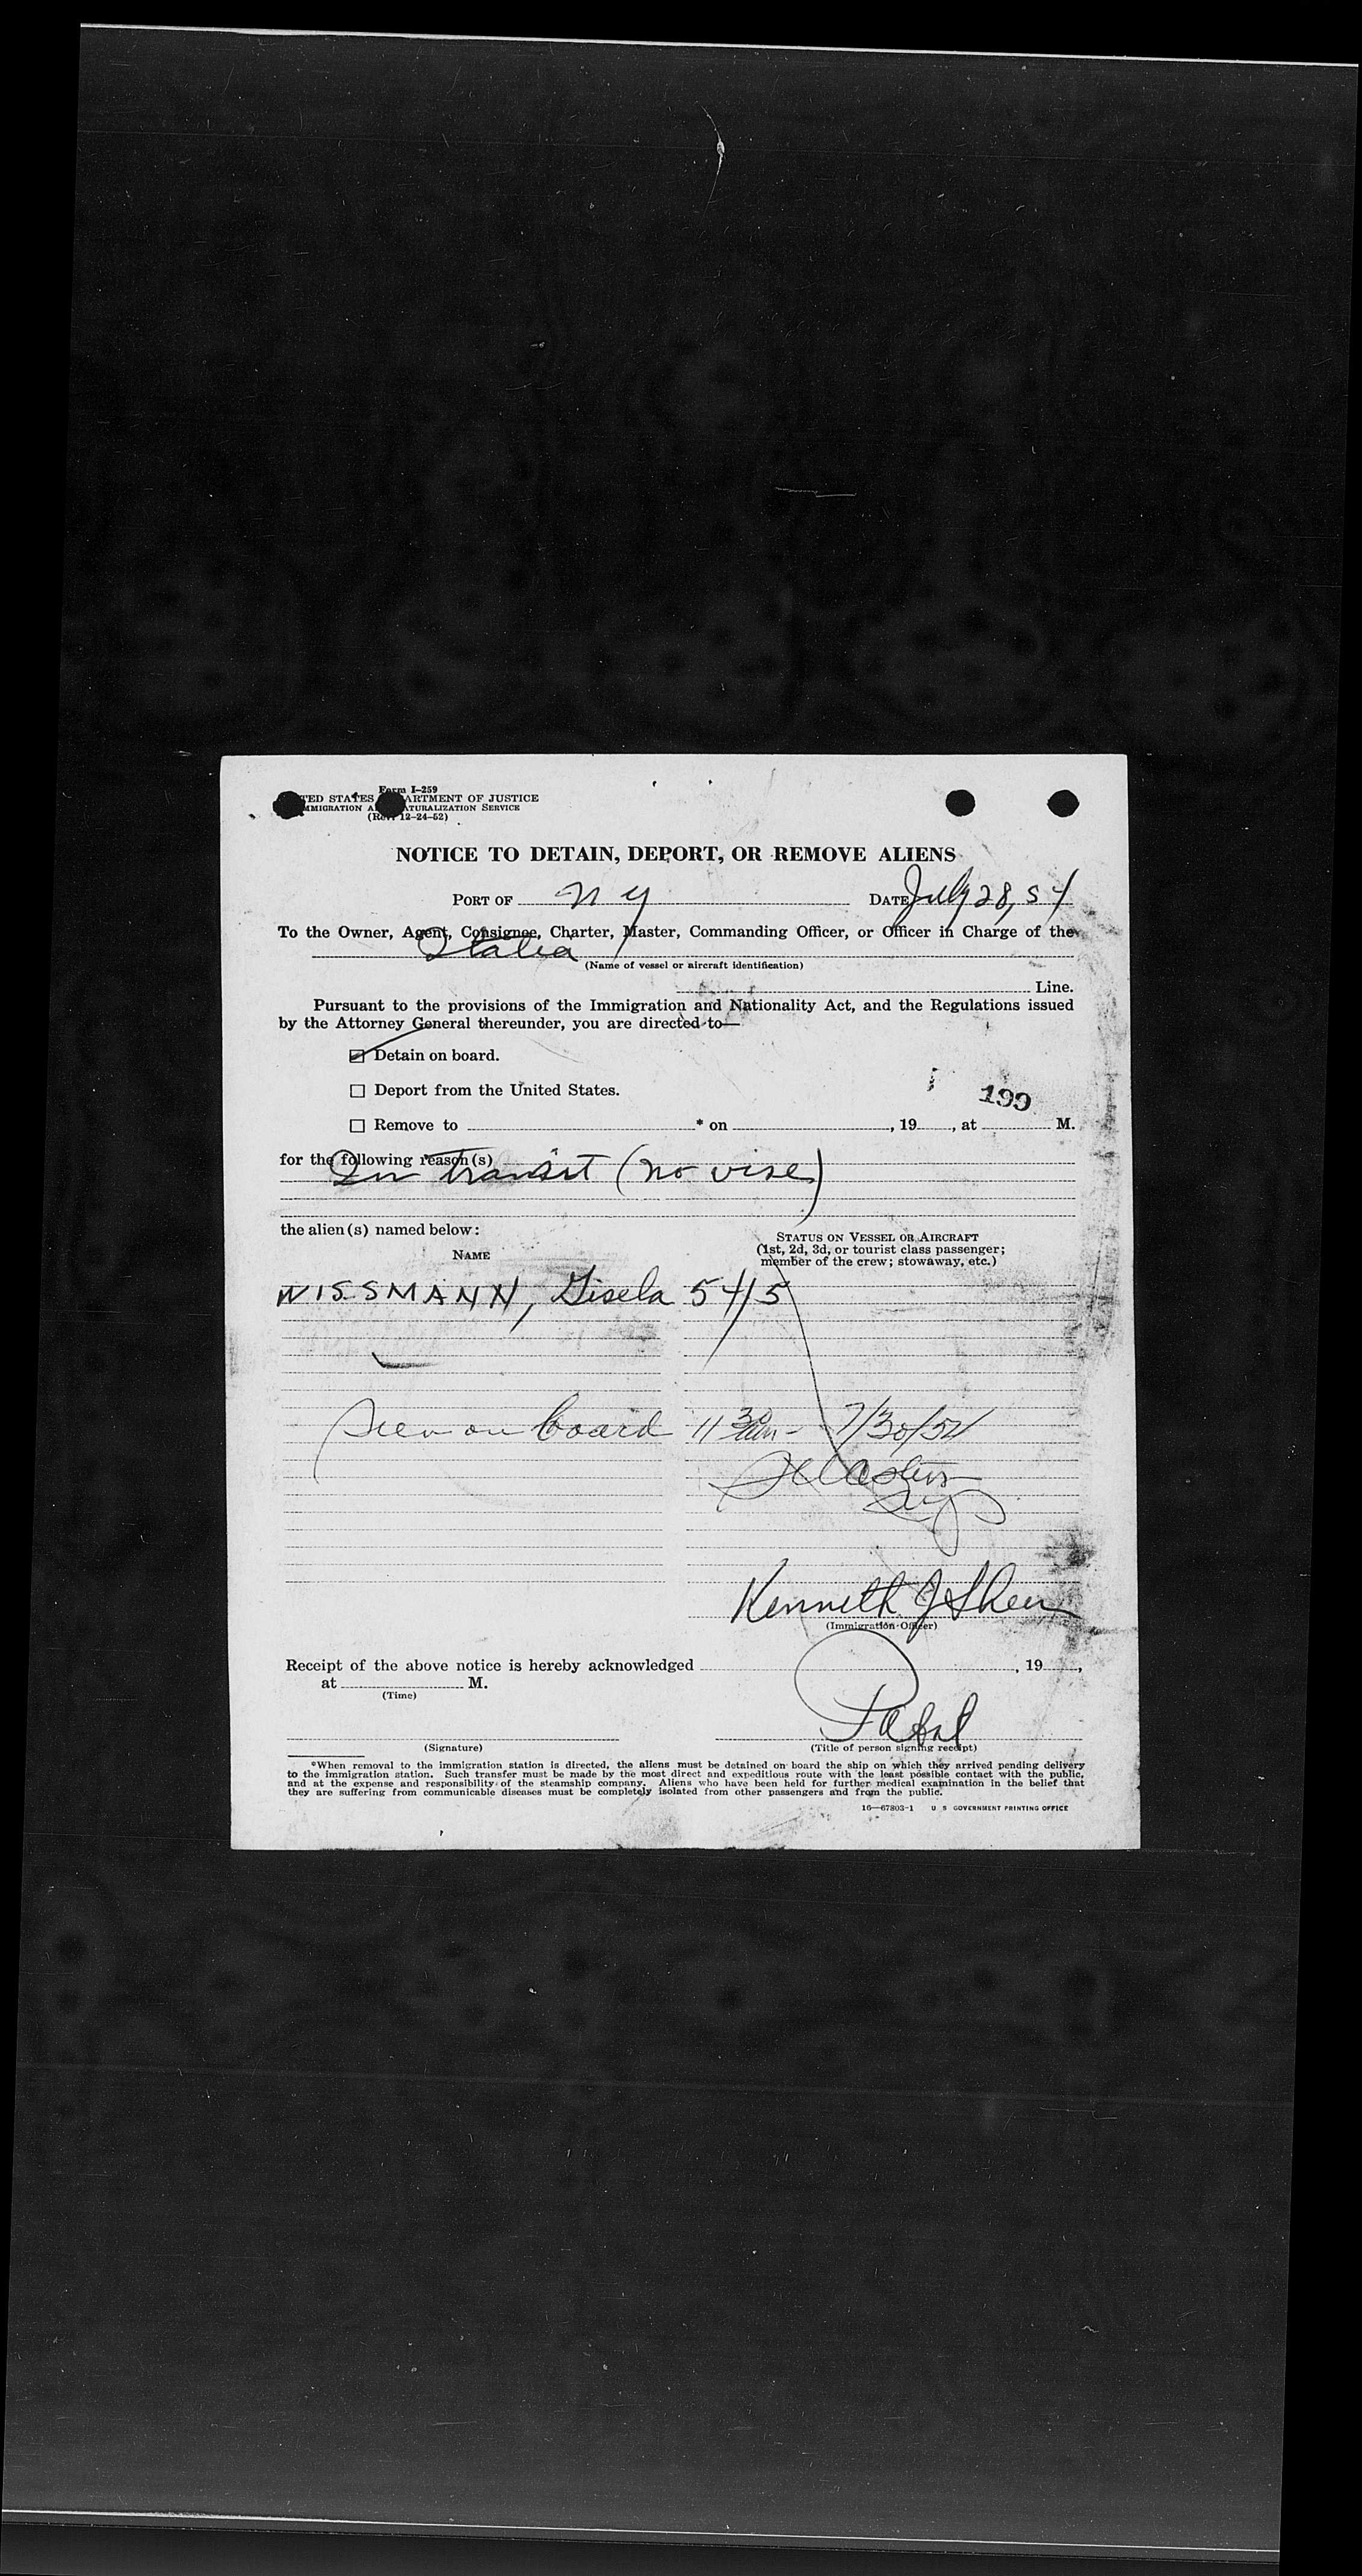 Form I-259
TED STATES ARTMENT OF JUSTICE
MMIGRATION A ATURALIZATION SERVICE
(Rev. 12-24-52)
NOTICE TO DETAIN, DEPORT, OR REMOVE ALIENS
PORT OF N Y DATE July 28, 54
To the Owner, Agent, Consignee, Charter, Master, Commanding Officer, or Officer in Charge of the
Italia
(Name of vessel or aircraft identification)
Line.
Pursuant to the provisions of the Immigration and Nationality Act, and the Regulations issued
by the Attorney General thereunder, you are directed to—
Detain on board.
Deport from the United States.
199
Remove to * on , 19 , at M.
for the following reason(s)
In transit (no vise)
the alien(s) named below:
STATUS ON VESSEL OR AIRCRAFT
(1st, 2d, 3d, or tourist class passenger;
member of the crew; stowaway, etc.)
NAME
WISSMANN, Gisela 54/5
Seen on board 11 30 am - 7/30/54
Kenneth J Shea
(Immigration Officer)
Receipt of the above notice is hereby acknowledged , 19 ,
at M.
(Time)
(Signature)
(Title of person signing receipt)
*When removal to the immigration station is directed, the aliens must be detained on board the ship on which they arrived pending delivery
to the immigration station. Such transfer must be made by the most direct and expeditious route with the least possible contact with the public,
and at the expense and responsibility of the steamship company. Aliens who have been held for further medical examination in the belief that
they are suffering from communicable diseases must be completely isolated from other passengers and from the public.
16—67803-1 U S GOVERNMENT PRINTING OFFICE